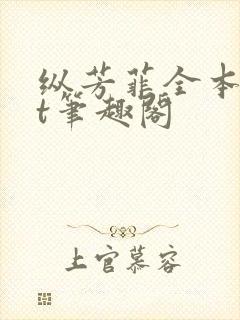 纵芳菲全本
t笔趣阁
上官慕容